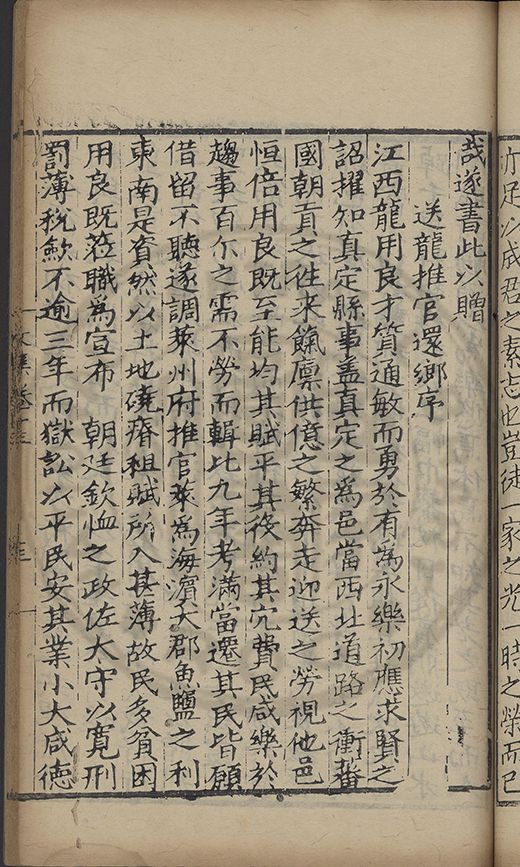 亦足以成君之素志也豈徒一家之光一時之榮而已
哉遂書此以贈
送龍推官還鄉序
江西龍用良才質通敏而勇於有為永樂初應求賢之
詔擢知真定縣事盖真定之為邑當西北道路之衝蕃
國朝貢之徃來餼廪供億之繁奔走迎送之勞視他邑
恒倍用良既至能均其賦平其役約其冗費民咸樂於
趨事百尓之需不勞而輯比九年考滿當遷其民皆願
借留不聽遂調萊州府推官萊為海濵大郡魚鹽之利
東南是資然以土地磽瘠租賦所入甚薄故民多貧困
用良既莅職為宣布 朝廷欽恤之政佐大守以寬刑
罰薄稅歛不逾三年而獄訟以平民安其業小大咸德